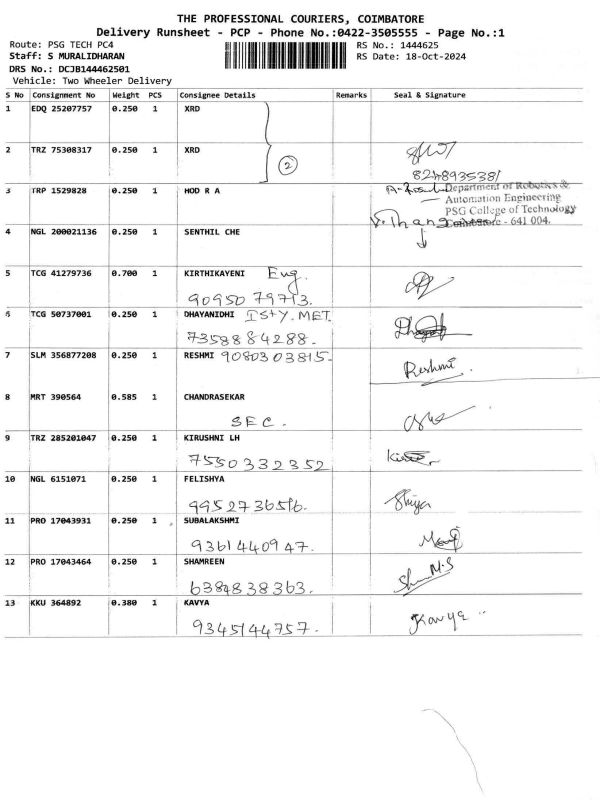 THE PROFESSIONAL COURIERS, COIMBATORE
Delivery Runsheet - PCP - Phone No.:0422-3505555 - Page No.:1
Route: PSG TECH PC4
RS No.: 1444625
Staff: S MURALIDHARAN
RS Date: 18-Oct-2024
DRS No.: DCJB144462501
Vehicle: Two Wheeler Delivery
S No Consignment No Weight PCS Consignee Details Remarks Seal & Signature
1 EDQ 25207757 0.250 1 XRD
2 TRZ 75308317 0.250 1 XRD
2
8248935381
3 TRP 1529828 0.250 1 HOD R A
Department of Robotics &
Automation Engineering
PSG College of Technology
Coimbatore - 641 004.
V. Thang
4 NGL 200021136 0.250 1 SENTHIL CHE
5 TCG 41279736 0.700 1 KIRTHIKAYENI Eng.
9095079713.
6 TCG 50737001 0.250 1 DHAYANIDHI Ist Y. MET
7358884288.
7 SLM 356877208 0.250 1 RESHMI 9080303815.
Reshmi
8 MRT 390564 0.585 1 CHANDRASEKAR
SEC.
9 TRZ 285201047 0.250 1 KIRUSHNI LH
7550332352
10 NGL 6151071 0.250 1 FELISHYA
9952736516.
11 PRO 17043931 0.250 1 SUBALAKSHMI
9361440947.
12 PRO 17043464 0.250 1 SHAMREEN
6384838363.
13 KKU 364892 0.380 1 KAVYA
9345144757.
Kavya